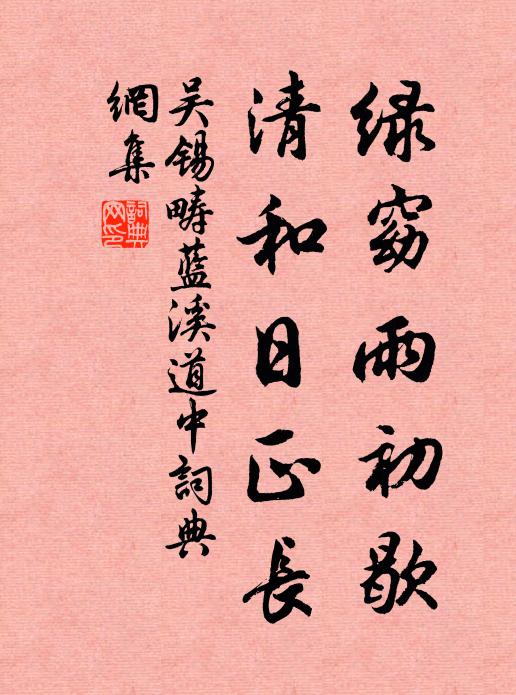 绿窈雨初歇
清和日正長
吴錫疇藍溪道中詞典
網集
詞典網印